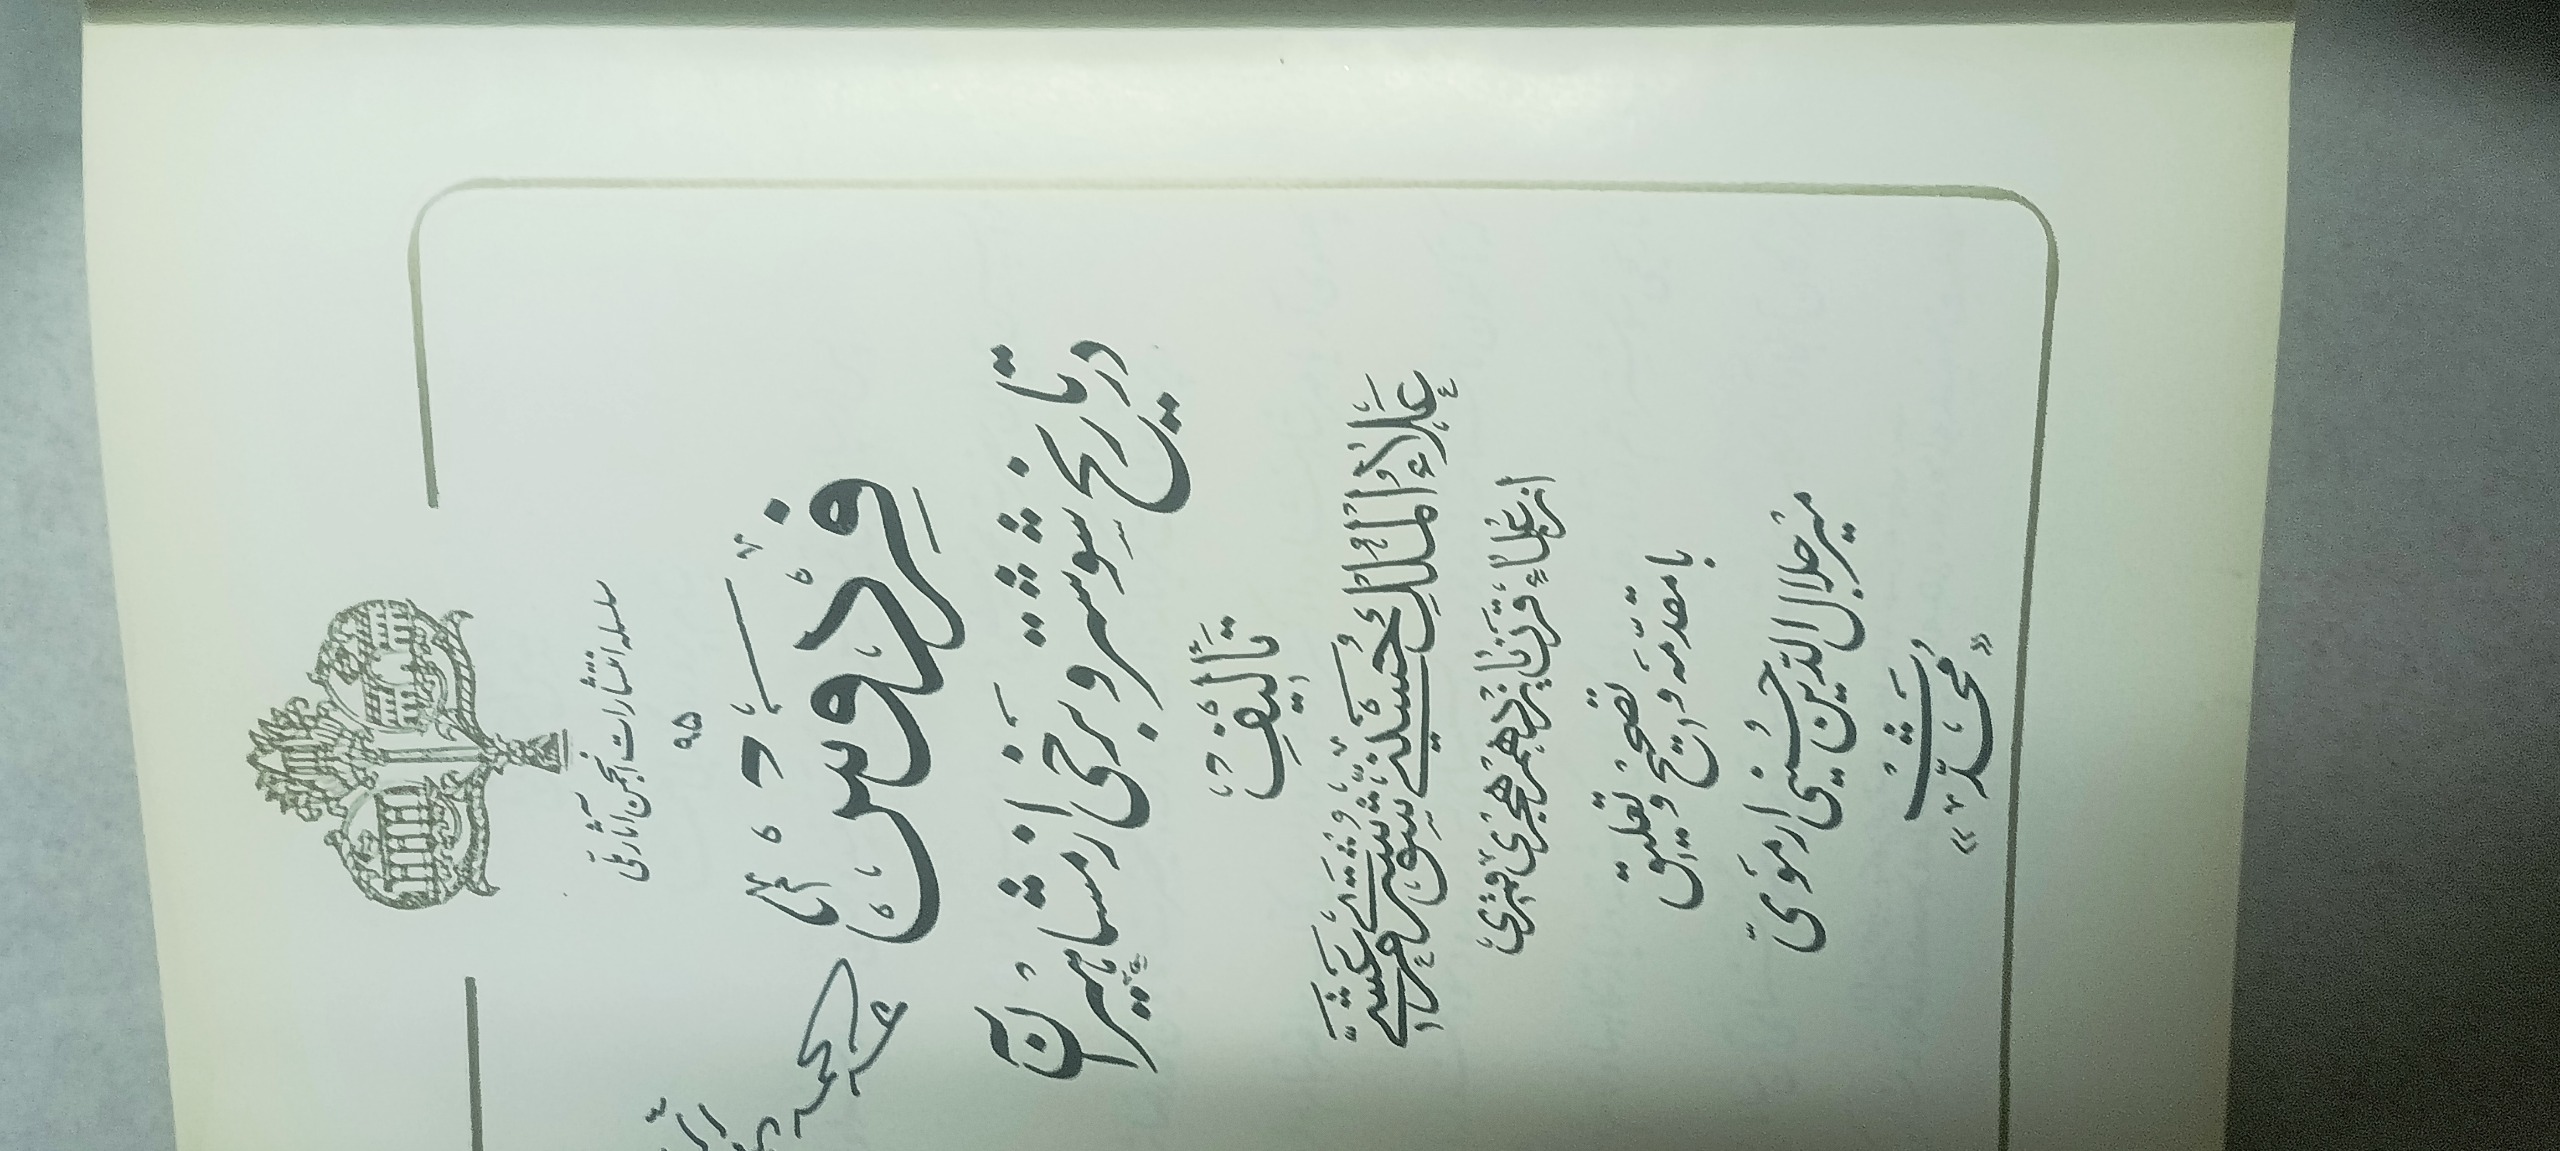 سلسلهٔ انتشارات انجمن آثار ملّی
۹۵
فِردَوس
در تاریخ شوشتر و برخی از مشاهیر آن
تألیف
علاء الملک حسینی شوشتری مرعشی
از علماء قرن یازدهم هجری قمری
با مقدّمه و تصحیح و تعلیق
میر جلال الدّین حسینی ارموی
«محدّث»